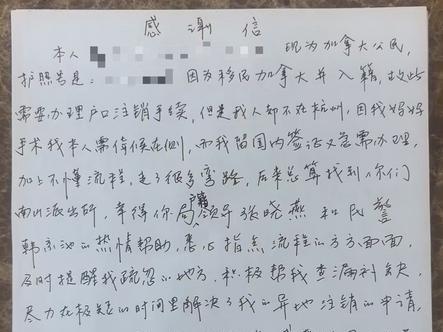 感谢信
本人 现为加拿大公民,
护照号是: 因为移民加拿大并入籍,故此
需要办理户口注销手续,但是我人却不在杭州,因我妈妈
手术我本人需侍候在侧,而我留国内签证又急需办理,
加上不懂流程,走了很多弯路,后来总算找到你们
南山派出所,幸得你局户籍领导张晓燕和民警
韩 的热情帮助,悉心指点流程的方方面面,
及时提醒我疏忽的地方,积极帮我查漏补缺,
尽力在极短的时间里解决了我的异地注销的申请,